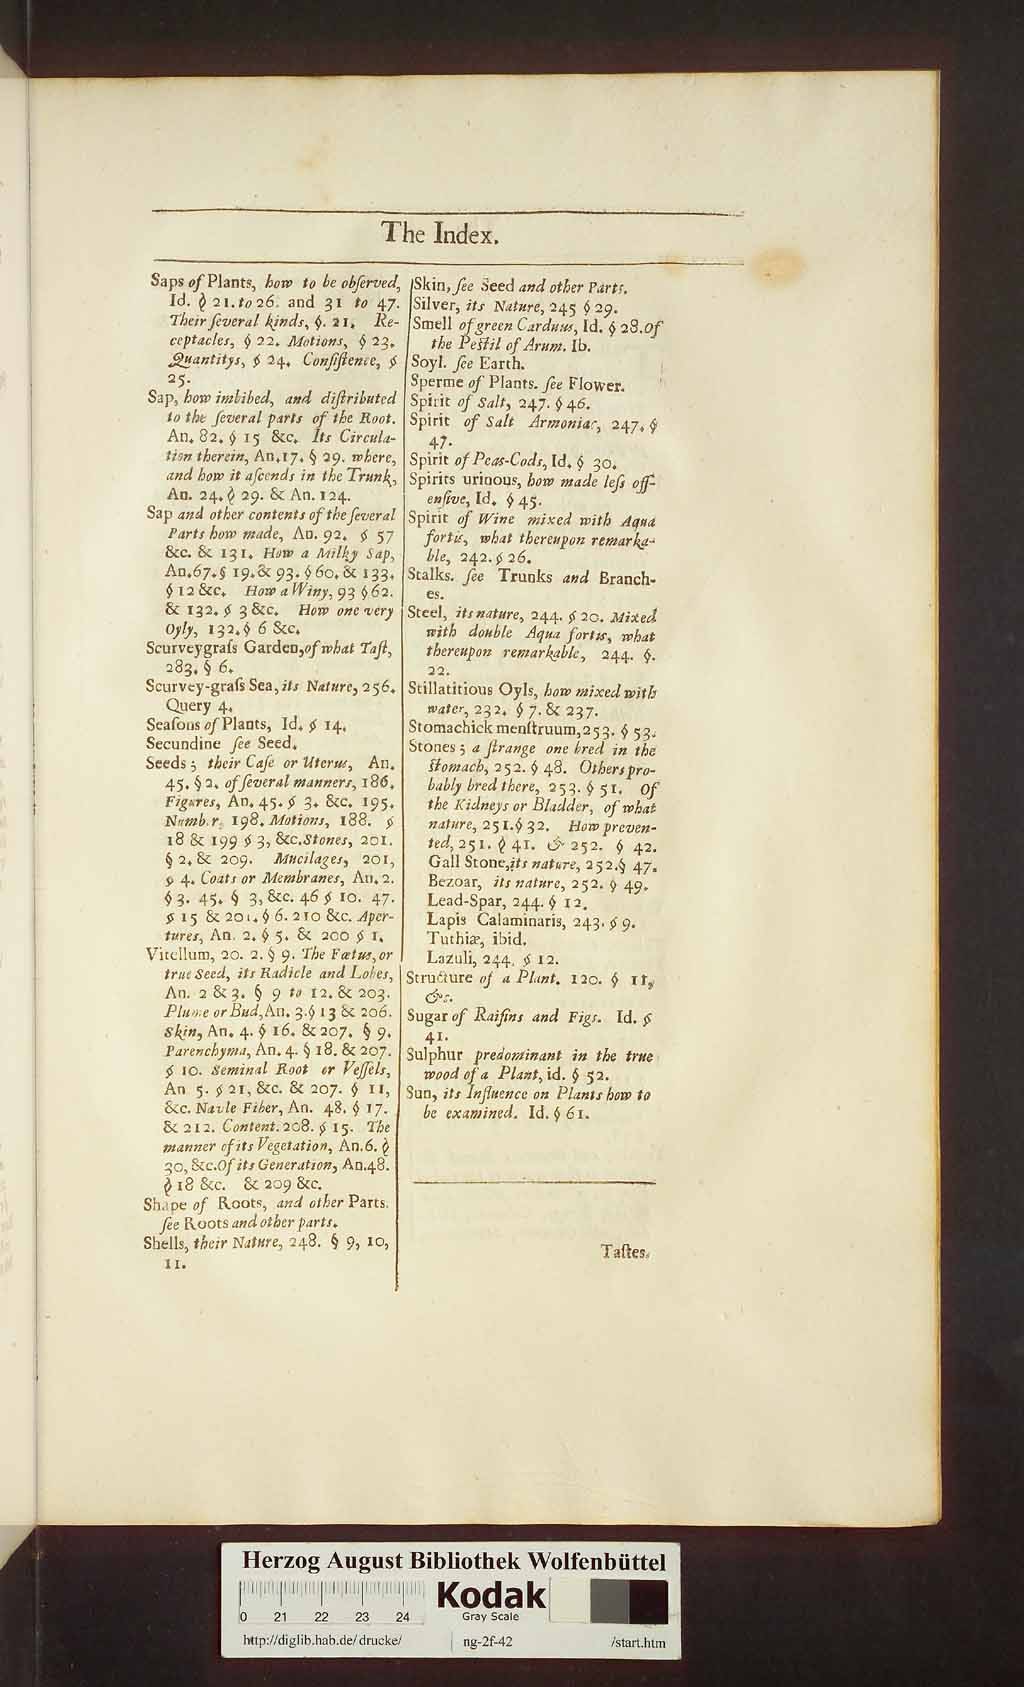 The Index.
Saps of Plants, how to be obſerved,
Id. § 21. to 26. and 31 to 47.
Their ſeveral kinds, §. 21. Re-
ceptacles, § 22. Motions, § 23.
Quantitys, § 24. Conſiſtence, §
25.
Sap, how imbibed, and diſtributed
to the ſeveral parts of the Root.
An. 82. § 15 &c. Its Circula-
tion therein, An. 17. § 29. where,
and how it aſcends in the Trunk,
An. 24. § 29. & An. 124.
Sap and other contents of the ſeveral
Parts how made, An. 92. § 57
&c. & 131. How a Milky Sap,
An. 67. § 19. & 93. § 60. & 133.
§ 12 &c. How a Winy, 93 § 62.
& 132. § 3 &c. How one very
Oyly, 132. § 6 &c.
Scurveygraſs Garden, of what Taſt,
283. § 6.
Scurvey-graſs Sea, its Nature, 256.
Query 4.
Seaſons of Plants, Id. § 14.
Secundine ſee Seed.
Seeds; their Caſe or Uterus, An.
45. § 2. of ſeveral manners, 186.
Figures, An. 45. § 3. &c. 195.
Number, 198. Motions, 188. §
18 & 199 § 3, &c. Stones, 201.
§ 2. & 209. Mucilages, 201,
§ 4. Coats or Membranes, An. 2.
§ 3. 45. § 3, &c. 46 § 10. 47.
§ 15 & 201. § 6. 210 &c. Aper-
tures, An. 2. § 5. & 200 § 1.
Vitellum, 20. 2. § 9. The Fœtus, or
true Seed, its Radicle and Lobes,
An. 2 & 3. § 9 to 12. & 203.
Plume or Bud, An. 3. § 13 & 206.
Skin, An. 4. § 16. & 207. § 9.
Parenchyma, An. 4. § 18. & 207.
§ 10. Seminal Root or Veſſels,
An 5. § 21, &c. & 207. § 11,
&c. Navle Fiber, An. 48. § 17.
& 212. Content. 208. § 15. The
manner of its Vegetation, An. 6. §
30, &c. Of its Generation, An. 48.
§ 18 &c. & 209 &c.
Shape of Roots, and other Parts.
ſee Roots and other parts.
Shells, their Nature, 248. § 9, 10,
11.
Skin, ſee Seed and other Parts.
Silver, its Nature, 245 § 29.
Smell of green Carduus, Id. § 28. Of
the Peſtil of Arum. Ib.
Soyl. ſee Earth.
Sperme of Plants. ſee Flower.
Spirit of Salt, 247. § 46.
Spirit of Salt Armoniac, 247. §
47.
Spirit of Peas-Cods, Id. § 30.
Spirits urinous, how made leſs off-
enſive, Id. § 45.
Spirit of Wine mixed with Aqua
fortis, what thereupon remarka-
ble, 242. § 26.
Stalks. ſee Trunks and Branch-
es.
Steel, its nature, 244. § 20. Mixed
with double Aqua fortis, what
thereupon remarkable, 244. §.
22.
Stillatitious Oyls, how mixed with
water, 232. § 7. & 237.
Stomachick menſtruum, 253. § 53.
Stones; a ſtrange one bred in the
Stomach, 252. § 48. Others pro-
bably bred there, 253. § 51. Of
the Kidneys or Bladder, of what
nature, 251. § 32. How preven-
ted, 251. § 41. & 252. § 42.
Gall Stone, its nature, 252. § 47.
Bezoar, its nature, 252. § 49.
Lead-Spar, 244. § 12.
Lapis Calaminaris, 243. § 9.
Tuthiæ, ibid.
Lazuli, 244. § 12.
Structure of a Plant. 120. § 11,
&c.
Sugar of Raiſins and Figs. Id. §
41.
Sulphur predominant in the true
wood of a Plant, id. § 52.
Sun, its Influence on Plants how to
be examined. Id. § 61.
Taſtes.
Herzog August Bibliothek Wolfenbüttel
Kodak
Gray Scale
0 21 22 23 24
http://diglib.hab.de/drucke/ ng-2f-42 /start.htm